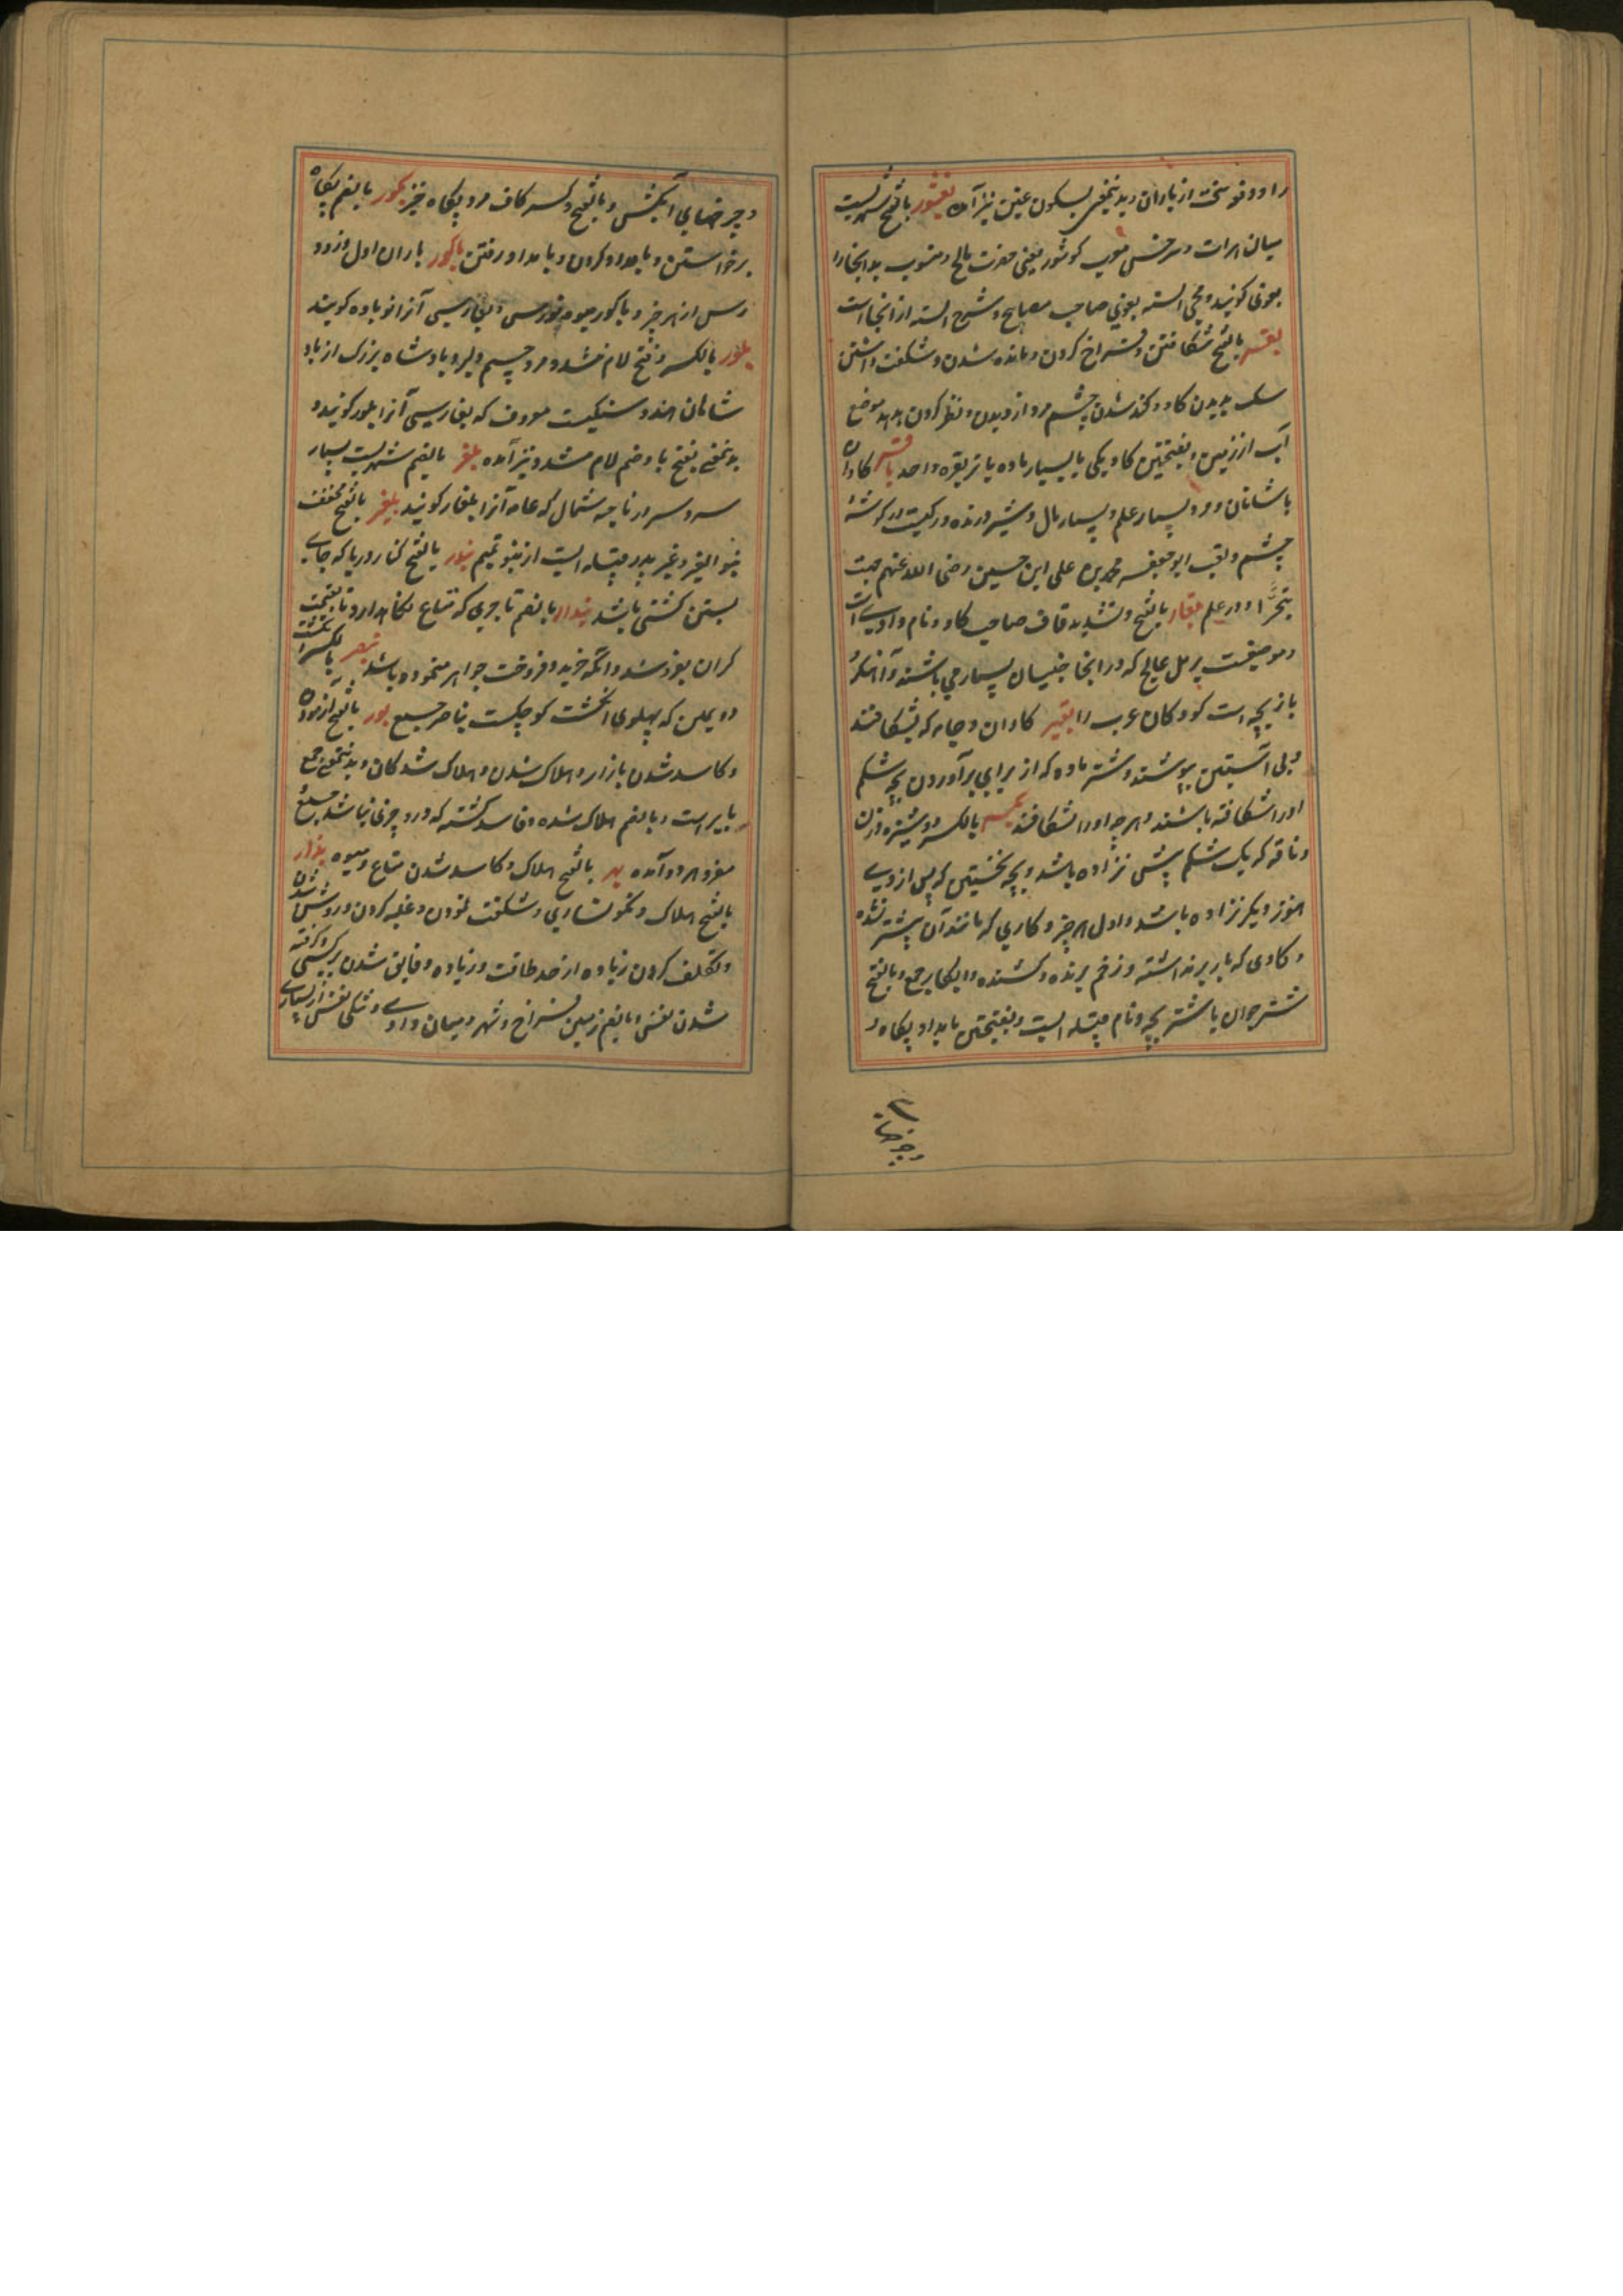 را و دفع سخت از باران و بدینمعنی بسکون غین نیز آمده بغشور بالفتح شهریست
میان هرات و سرخس معرب کوشور یعنی حفرت مالح و منسوب بد انجا را
بغوی کویند و محی السنه بغوی صاحب مصابیح و شرح السنه از انجا است
بقر بالفتح شکافتن و فراخ کردن و مانده شدن و شکفت داشتن
سک بدیدن کاو و کند شدن چشم مرد از دیدن و نظر کردن هدهد موضع
آب از زمین و بفتحتین کاو یکی یا بسیار ماده یا نر بقره واحد باقر کاوان
با شبانان و مرد بسیار علم و بسیار مال و شیر درنده و رکیست در کوشهٔ
چشم و لقب ابو جعفر محمد بن علی ابن حسین رضی الله عنهم جهت
تبحّر او در علم بقار بالفتح و تشدید قاف صاحب کاو و نام وادیی است
و موضعیست برمل عالج که در انجا جنیان بسیار می باشند و آهنکر و
بازیچه است کودکان عرب را بقیر کاوان و جامه که بشکافند
و بی آستین بپوشند و شتر ماده که از برای برآوردن بچه شکم
او را شکافته باشند و هر چه او را بشکافند بکر بالکسر دوشیزه و زن
و ناقه که یک شکم بیش نزاده باشد و بچه نخستین که پس از وی
هنوز دیکر نزاده باشد و اول هر چیز و کاری که مانند آن بیشتر نشده
و کاوی که بار بر نداشته و زخم برنده و کشنده و ابکار جمع و بالفتح
شتر جوان یا شتر بچه و نام قبیله ایست و بفتحتین بامداد پکاه و
و چرخهای
و چرخهای آبکش و بالفتح و کسر کاف مرد پکاه خیز بکور بالضم پکاه
برخاستن و بامداد کردن و بامداد رفتن باکور باران اول و زود
رس از هر چیز و باکور میوه نورس و بفارسی آنرا نوباده کویند
بلور بالکسر و فتح لام مشدد مرد جسیم و لیر و بادشاه بزرک از باد
شاهان هند و سنکیست معروف که بفارسی آنرا بلور کویند و
بدینمعنی بفتح با و ضم لام مشدد نیز آمده بلغر بالضم شهریست بسیار
سردسیر در ناحیه شمال که عامه آنرا بلغار کویند بلعنبر بالفتح مخفف
بنو العنبر و عنبر پدر قبیله ایست از بنو تمیم بندر بالفتح کنار دریا که جای
بستن کشتی باشد بندار بالضم تاجری که متاع نکاهدارد تا بقیمت
کران بفروشد و انکه خرید و فروخت جواهر نموده باشد بنصر بالکسر انکشت
دویمین که پهلوی انکشت کوچکست بناصر جمع بور بالفتح آزمودن
و کاسد شدن بازار و هلاک شدن و هلاک شدکان و بدینمعنی جمع
بایر است و بالضم هلاک شده و فاسد کشته که درو چیزی نباشد جمع و
مفرد هر دو آمده بهر بالفتح هلاک و کاسد شدن متاع و میوه بهار
بالفتح هلاک و نکونساری و شکفت نمودن و غلبه کردن و روشن شدن
و تکلف کردن زیاده از حد طاقت و زیاده و فایق شدن بر کسی و کرفته
شدن نفس و بالضم زمین فراخ و شهر و میان وادی و تنکی نفس از بسیاری